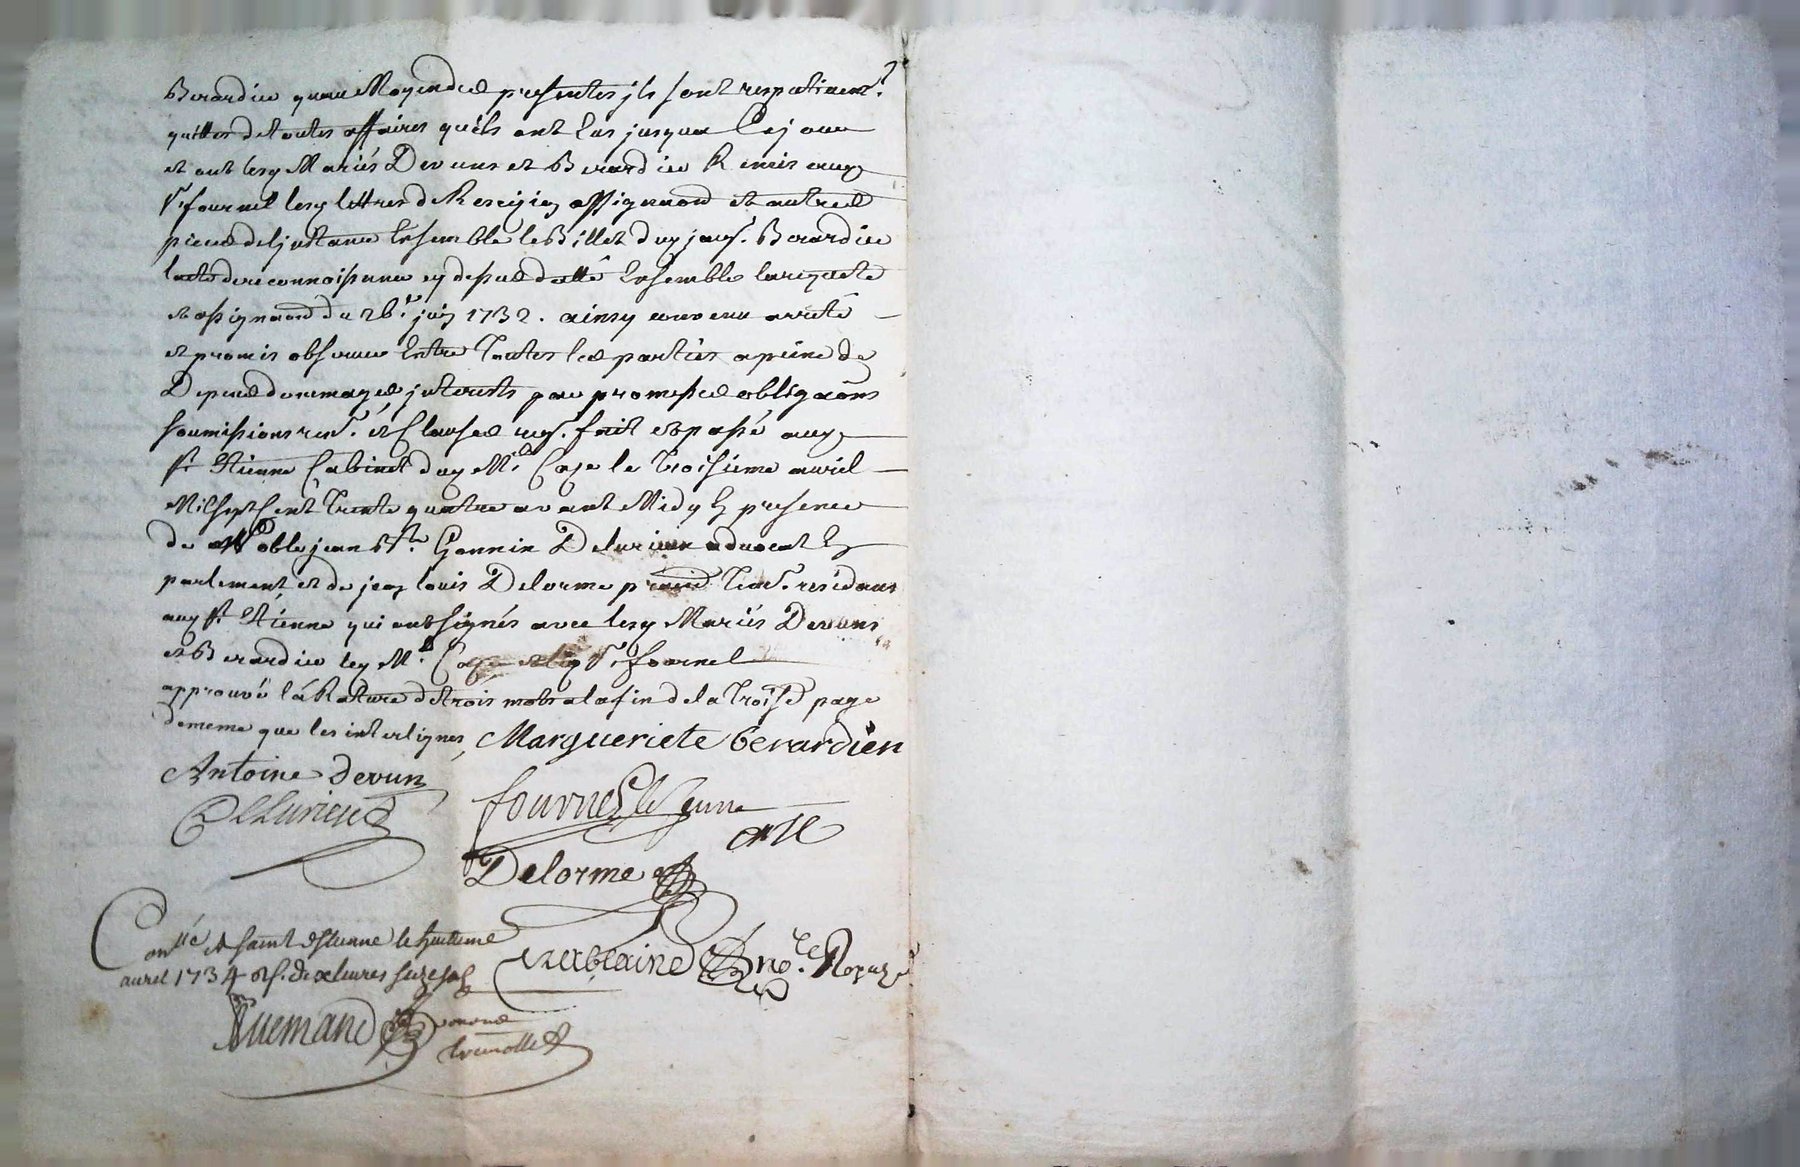 Berardier quau Moyendes presentes ils sont respectivem.t
quittes de toutes affaires quils ont Eus jusqua Cejour
et ont lesq Mariés Devuns et Berardier Remis aux
Sr fournel lesq lettres de Rescizion assignaōn et autres
pieces delinstance Ensemble le Billet dud jacq. Berardier
lacte dereconnoissance cy dessus datté Ensemble larequete
et assignaōn du 26.e juin 1732. ainsy convenu arrété
et promis observer Entre Toutes les parties apeine de
Depens dommages, interests par promesses obligaōns
soumissions ren.s et Clauses req. fait et passé aud
St Etienne Cabinet dud Me Caze le Troisieme avril
Mil sept Cent Trente quatre avant Midy En presence
de Noble jean Bte Gonnin Delurieu advocat En
parlement et de jean louis Delorme residans
aud St Etienne qui ont signés avec lesq Mariés Devuns
et Berardier led Me Caze et led Sr fournel
approuvé la Rature de trois mots alafin dela Trois.e page
dememe que les interlignes, Margueriete berardien
Antoine devun
Delurieu
fournel le jeune
Caze
Delorme
Con.lle A saint Estienne le huitieme
avril 1734 Rs. dixlivres seize sols
no.re Royal
Allemand